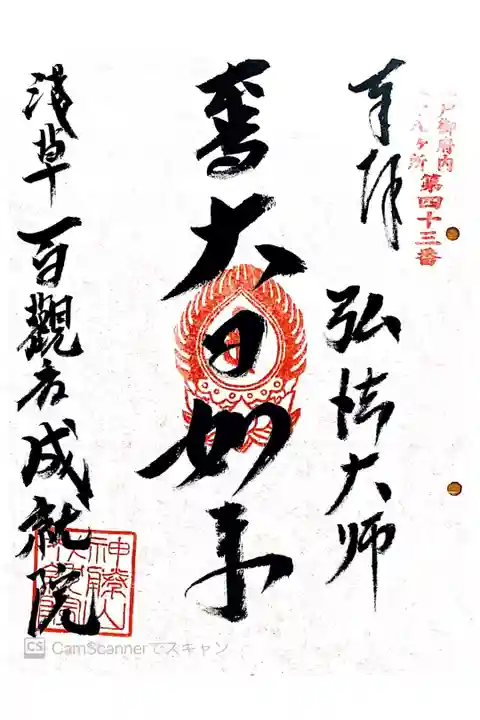 戸御府内
八ヶ所
第四十三番
奉拝 弘法大師
本尊 大日如来
浅草 百觀音成就院
神勝山
CS CamScannerでスキャン